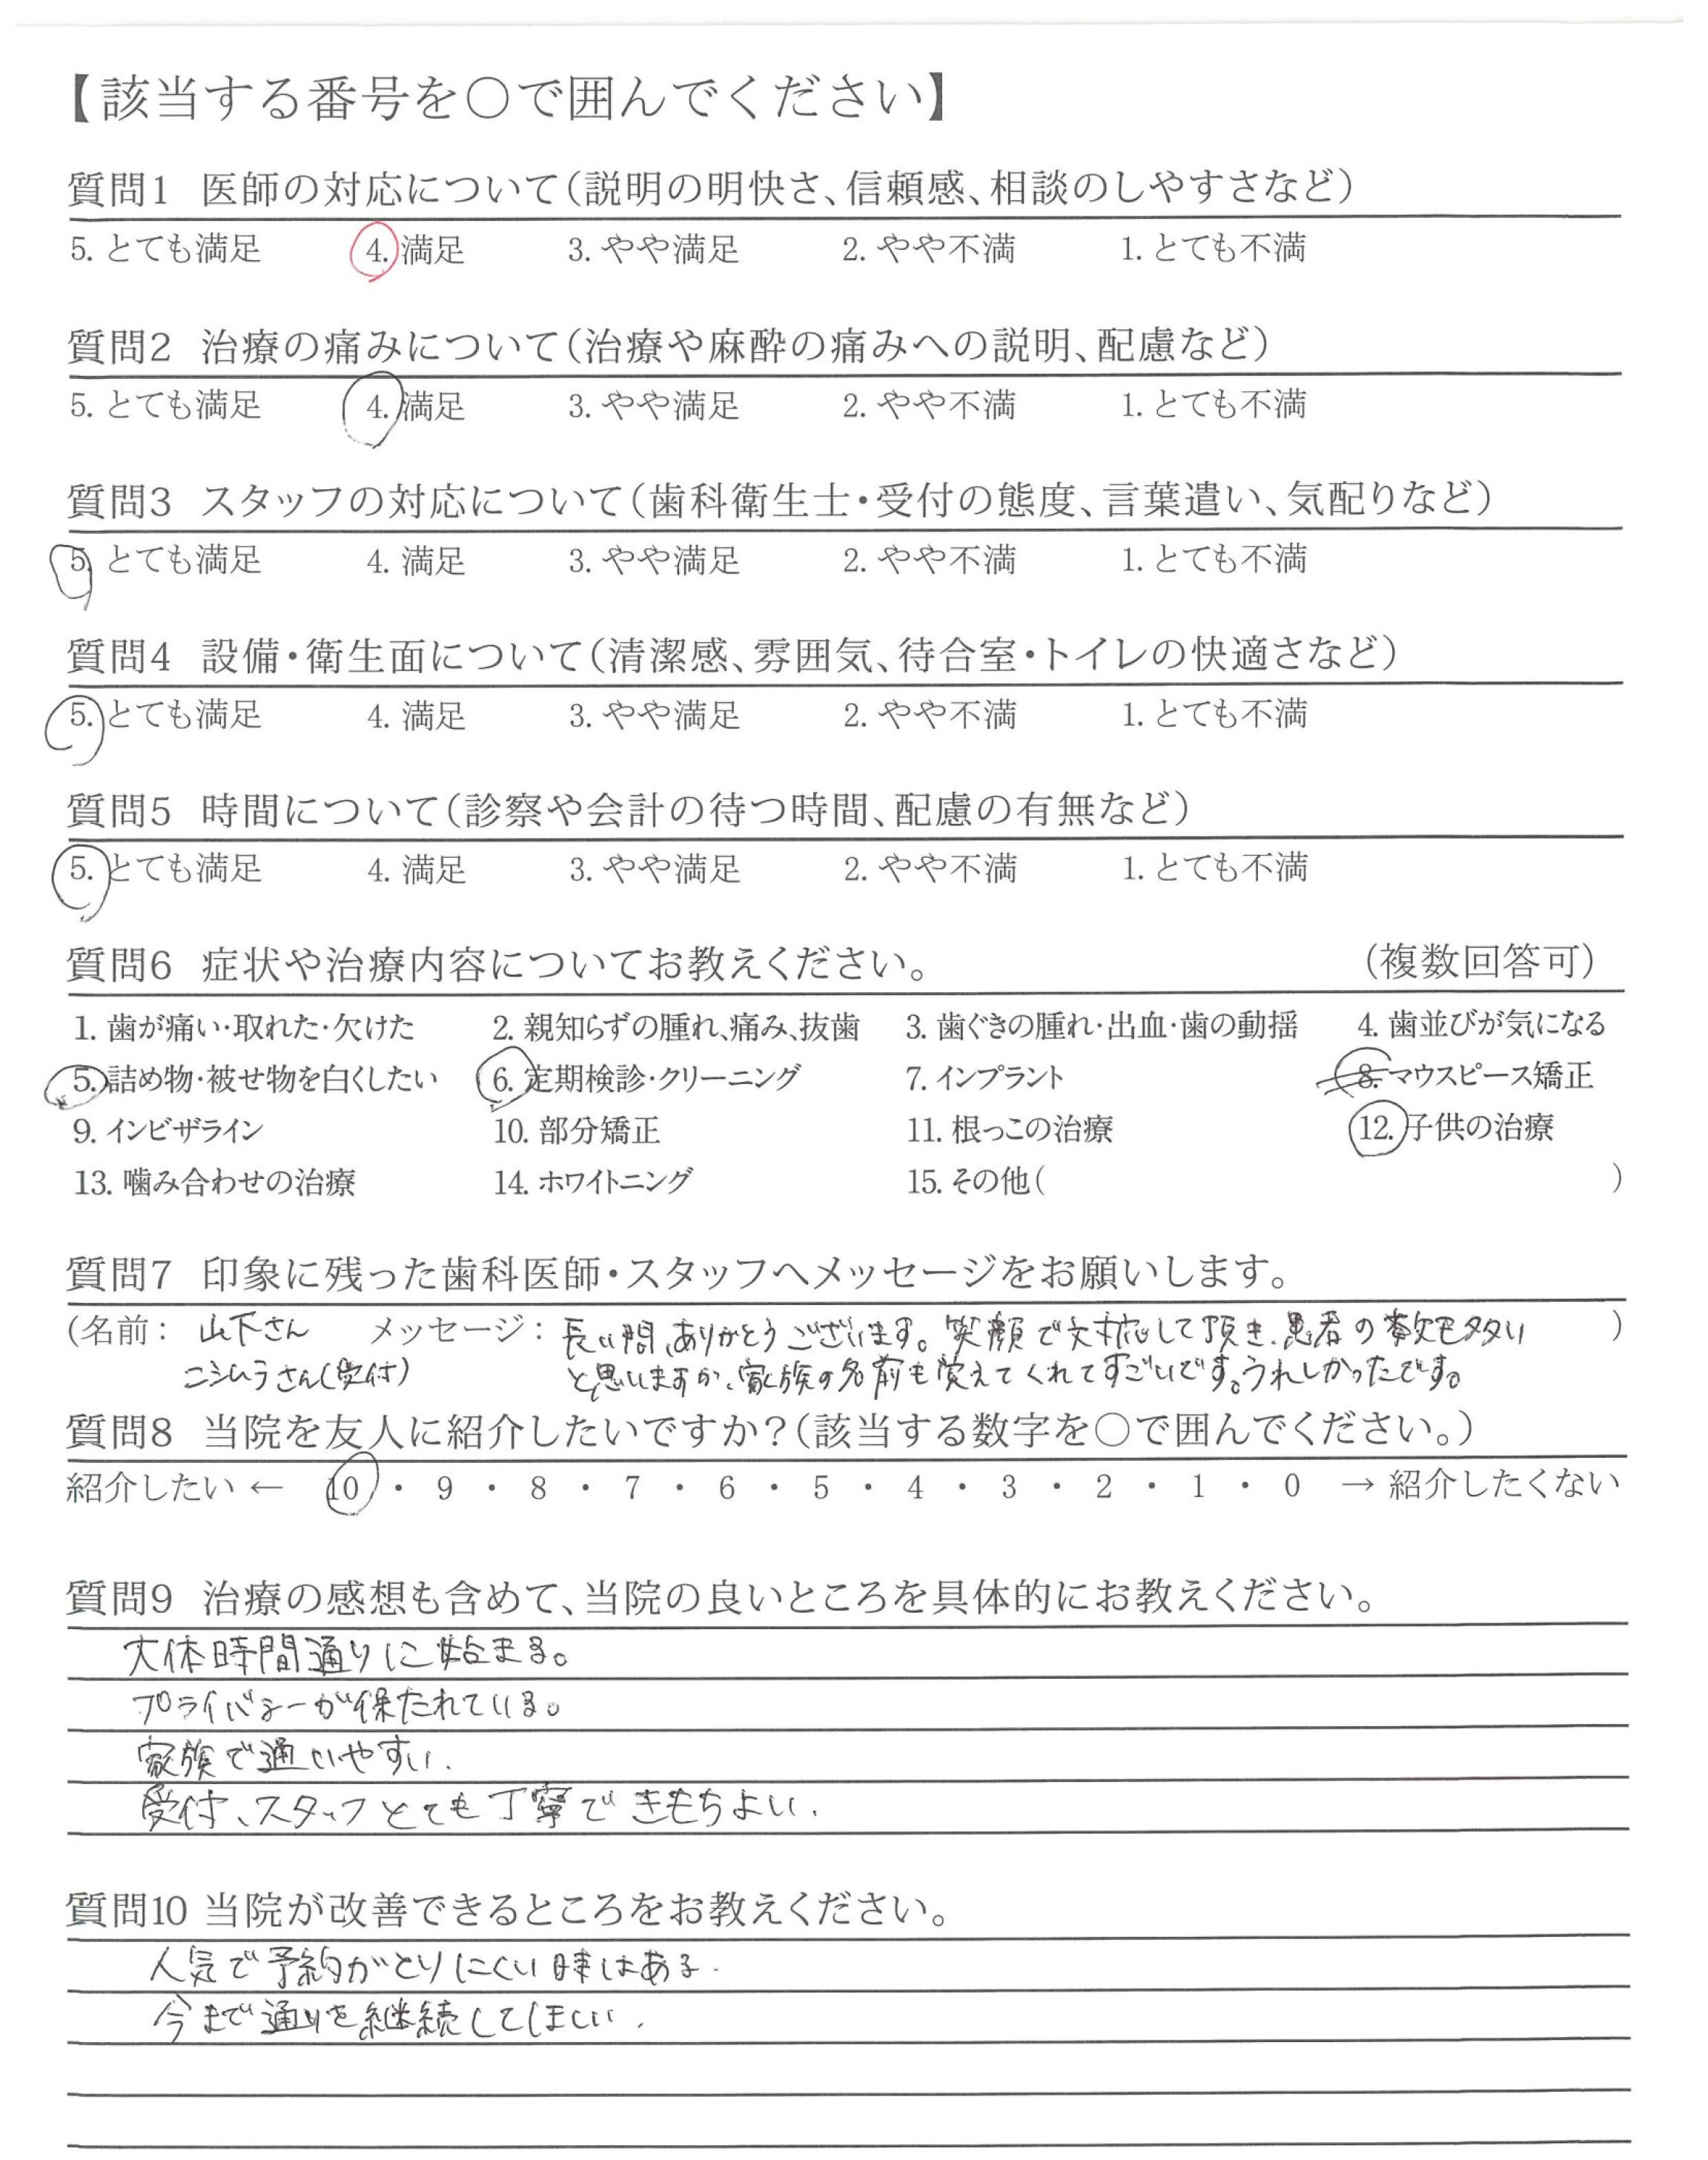 【該当する番号を〇で囲んでください】
質問1 医師の対応について（説明の明快さ、信頼感、相談のしやすさなど）
5. とても満足 4. 満足 3. やや満足 2. やや不満 1. とても不満
質問2 治療の痛みについて（治療や麻酔の痛みへの説明、配慮など）
5. とても満足 4. 満足 3. やや満足 2. やや不満 1. とても不満
質問3 スタッフの対応について（歯科衛生士・受付の態度、言葉遣い、気配りなど）
5. とても満足 4. 満足 3. やや満足 2. やや不満 1. とても不満
質問4 設備・衛生面について（清潔感、雰囲気、待合室・トイレの快適さなど）
5. とても満足 4. 満足 3. やや満足 2. やや不満 1. とても不満
質問5 時間について（診察や会計の待つ時間、配慮の有無など）
5. とても満足 4. 満足 3. やや満足 2. やや不満 1. とても不満
質問6 症状や治療内容についてお教えください。 （複数回答可）
1. 歯が痛い・取れた・欠けた 2. 親知らずの腫れ、痛み、抜歯 3. 歯ぐきの腫れ・出血・歯の動揺 4. 歯並びが気になる
5. 詰め物・被せ物を白くしたい 6. 定期検診・クリーニング 7. インプラント 8. マウスピース矯正
9. インビザライン 10. 部分矯正 11. 根っこの治療 12. 子供の治療
13. 噛み合わせの治療 14. ホワイトニング 15. その他（ ）
質問7 印象に残った歯科医師・スタッフへメッセージをお願いします。
（名前： 山下さん メッセージ： 長い間、ありがとうございます。笑顔で対応して頂き、患者の数も多い ）
ニシムラさん（受付） と思いますが、家族の名前も覚えてくれてすごいです。うれしかったです。
質問8 当院を友人に紹介したいですか？（該当する数字を〇で囲んでください。）
紹介したい ← 10 ・ 9 ・ 8 ・ 7 ・ 6 ・ 5 ・ 4 ・ 3 ・ 2 ・ 1 ・ 0 → 紹介したくない
質問9 治療の感想も含めて、当院の良いところを具体的にお教えください。
大体時間通りに始まる。
プライバシーが保たれている。
家族で通いやすい.
受付、スタッフとても丁寧できもちよい.
質問10 当院が改善できるところをお教えください。
人気で予約がとりにくい時はある.
今まで通りを継続してほしい.